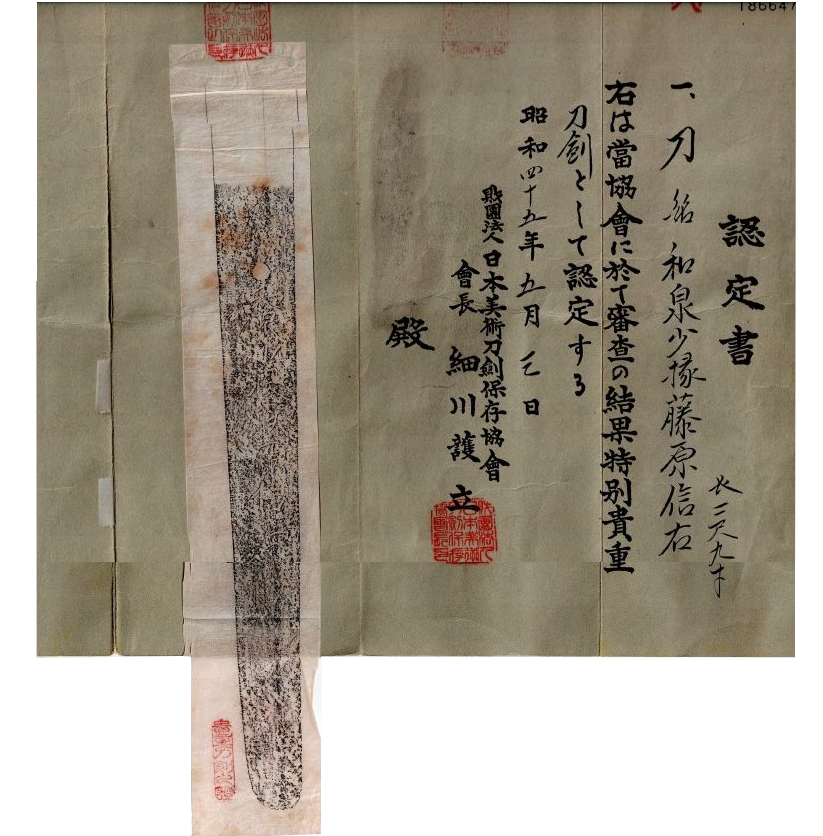 186647
認定書
一、刀 銘 和泉少掾藤原信右
長二尺九寸
右は當協會に於て審査の結果特別貴重
刀劍として認定する
昭和四十五年五月三日
財團法人日本美術刀劍保存協會
會長 細川護立
殿